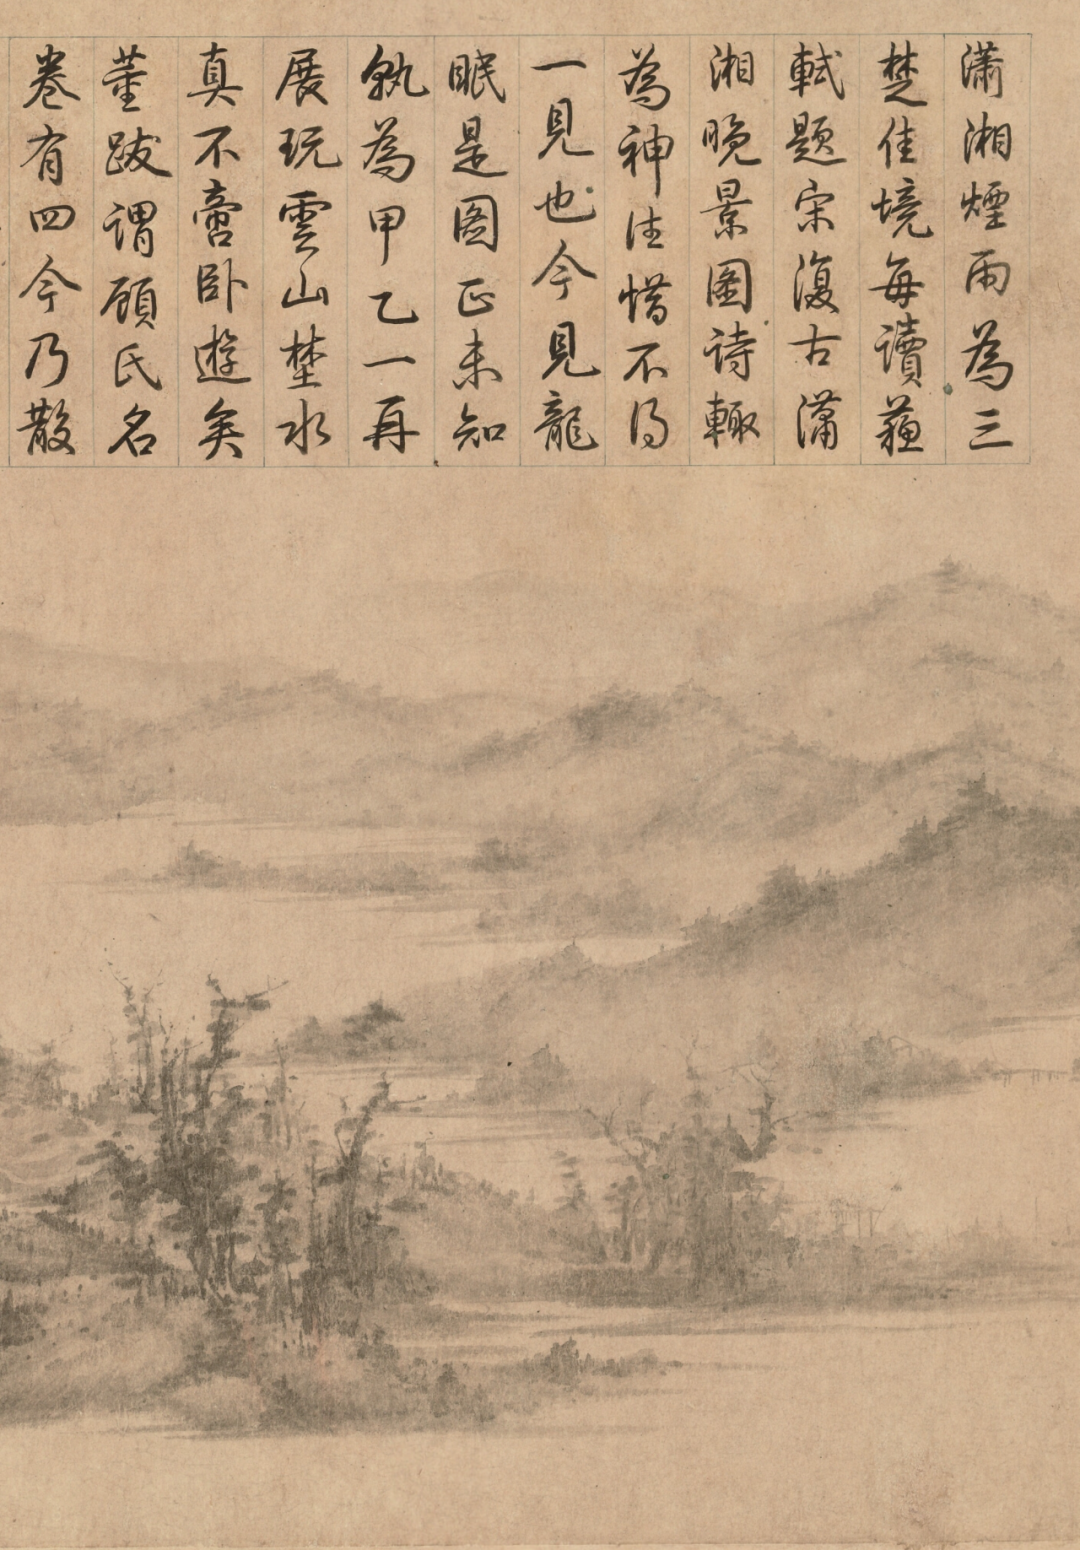 瀟湘煙雨為三
楚佳境每讀蘓
軾題宋復古瀟
湘晚景圖詩輙
為神往惜不得
一見也今見龍
眠是圖正未知
孰為甲乙一再
展玩雲山埜水
真不啻臥遊矣
董跋謂顧氏名
卷有四今乃散